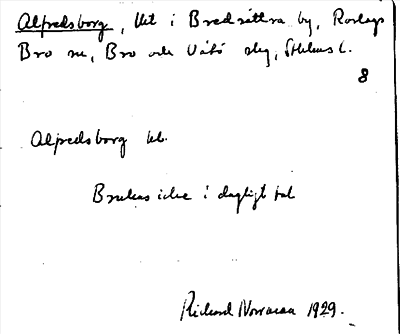 Alfredsborg, lht i Bredsättra by, Roslags
Bro sn, Bro och Vätö skg, Sthlms l.
8
Alfredsborg lht.
Brukas icke i dagligt tal
Richard Norrman 1929.